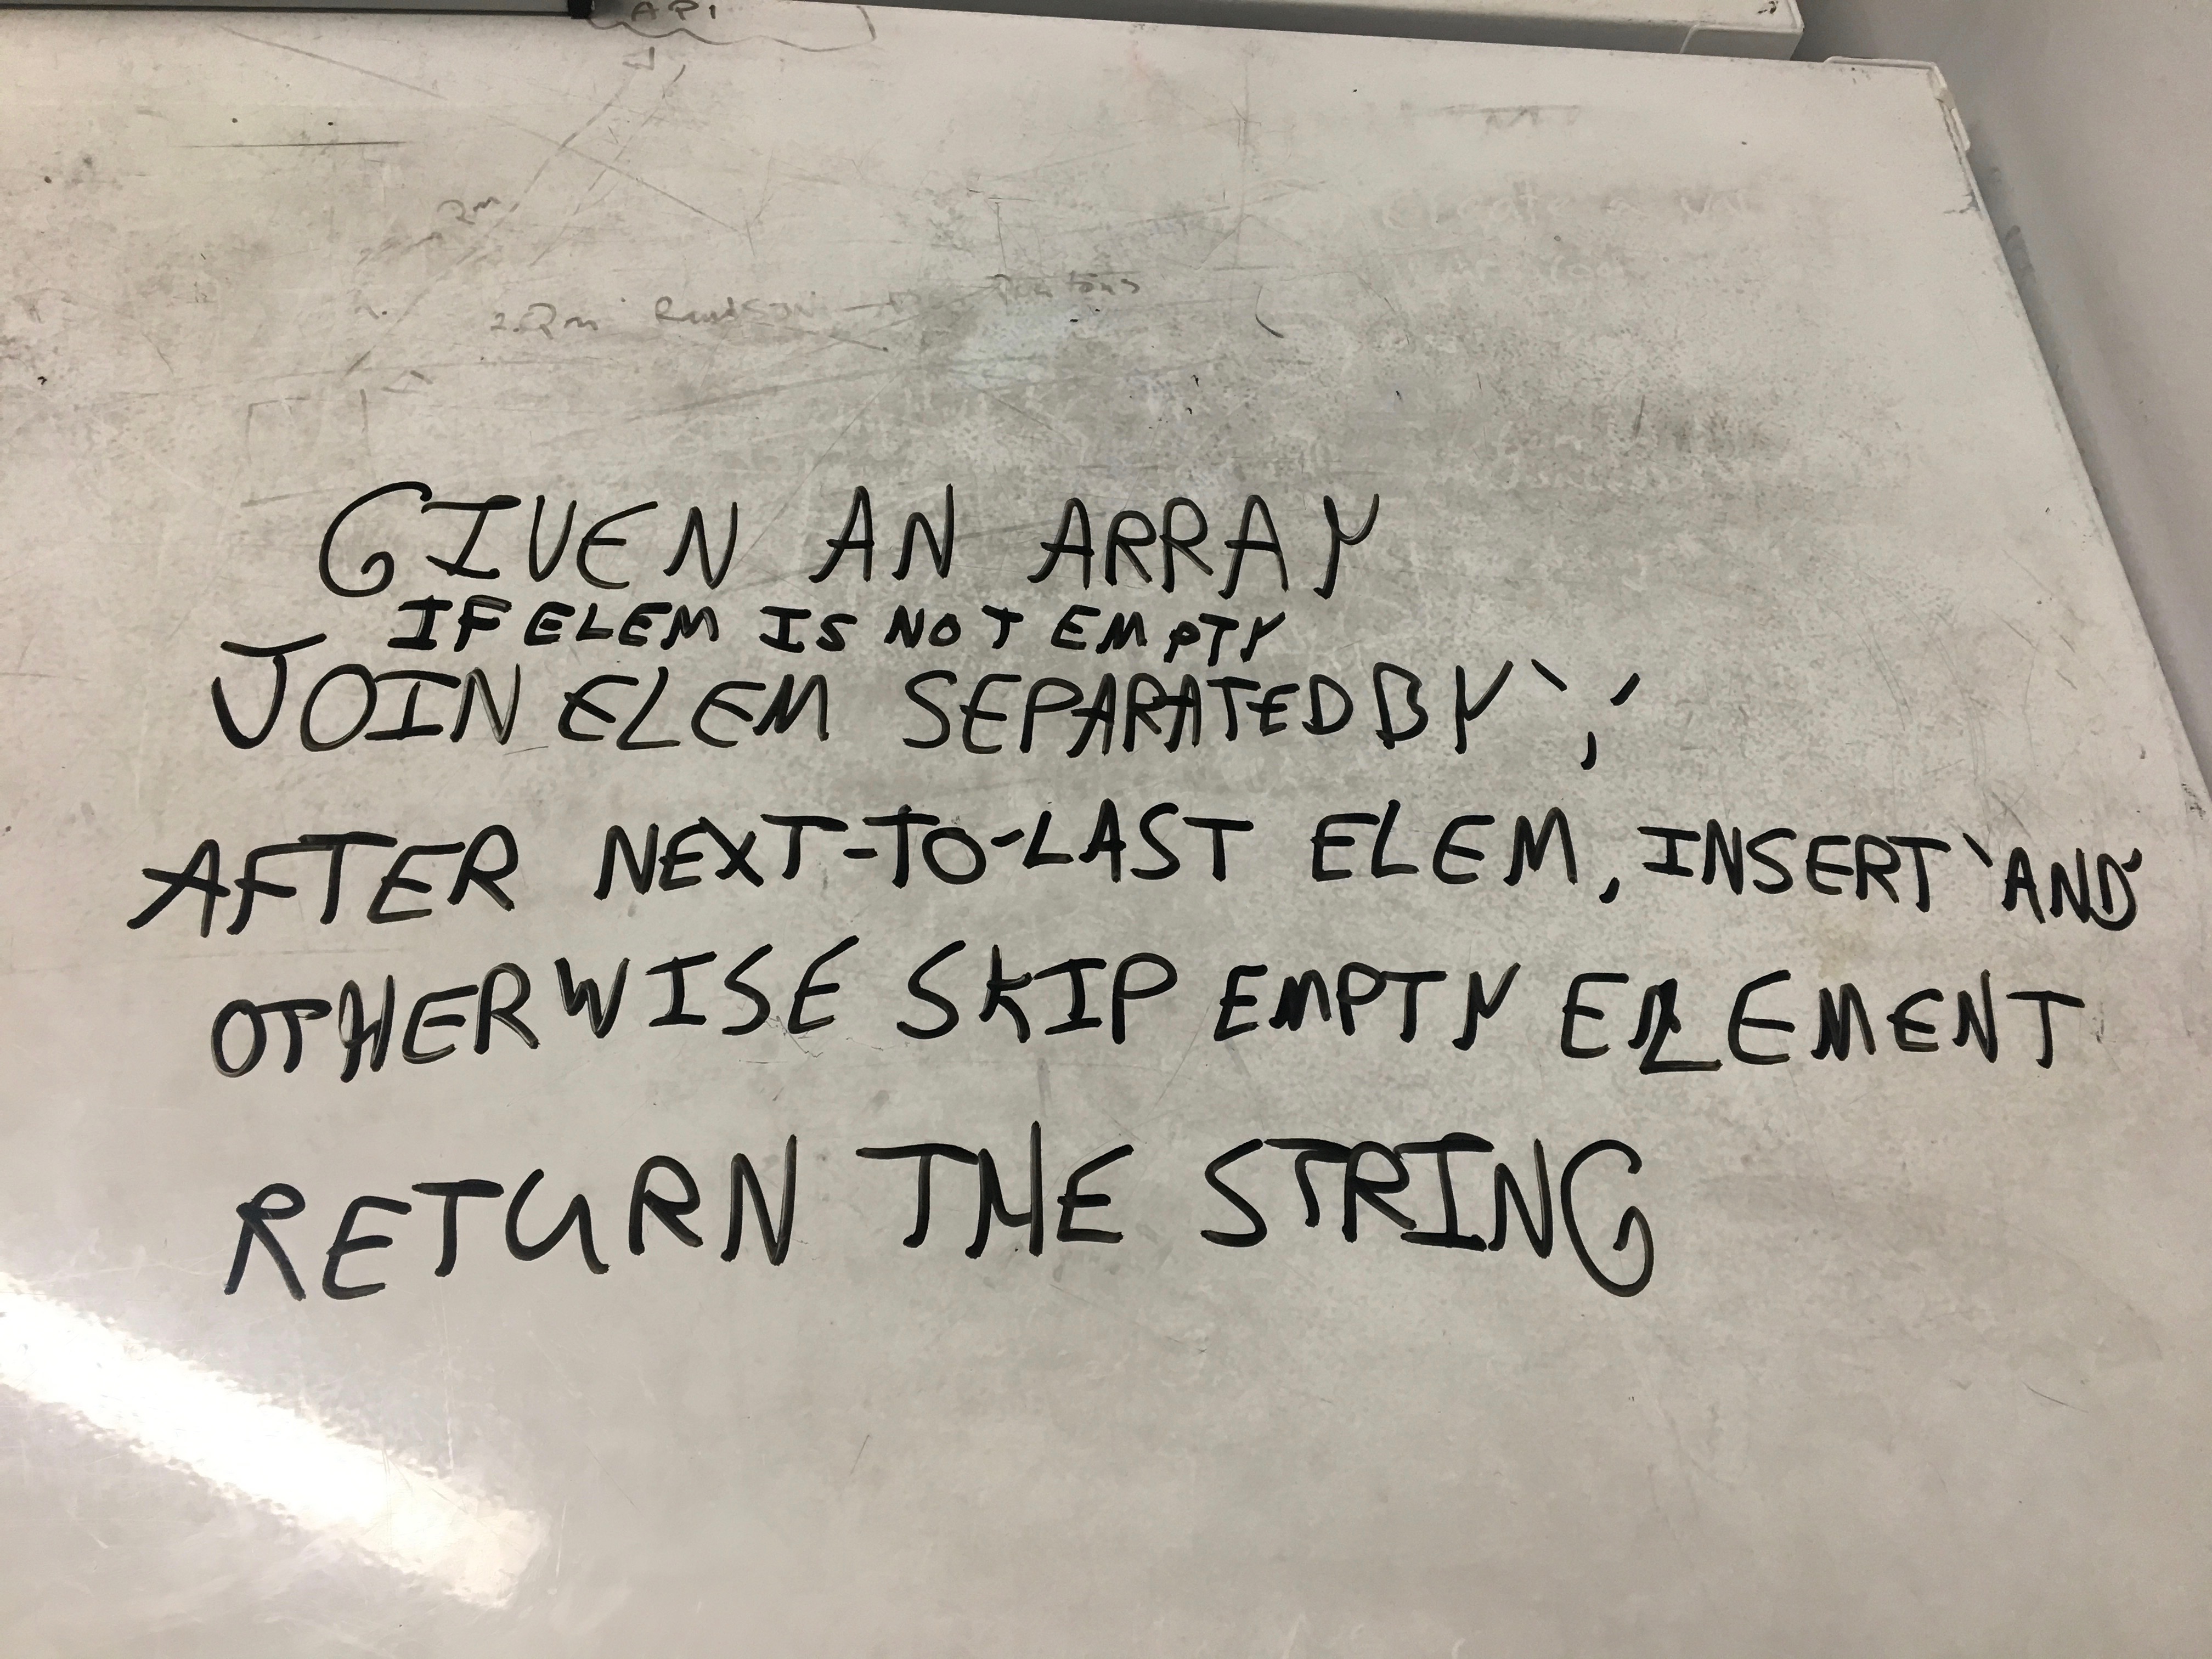 API
GIVEN AN ARRAY
IF ELEM IS NOT EMPTY
JOIN ELEM SEPARATED BY `,´
AFTER NEXT-TO-LAST ELEM, INSERT `AND´
OTHERWISE SKIP EMPTY ELEMENT
RETURN THE STRING